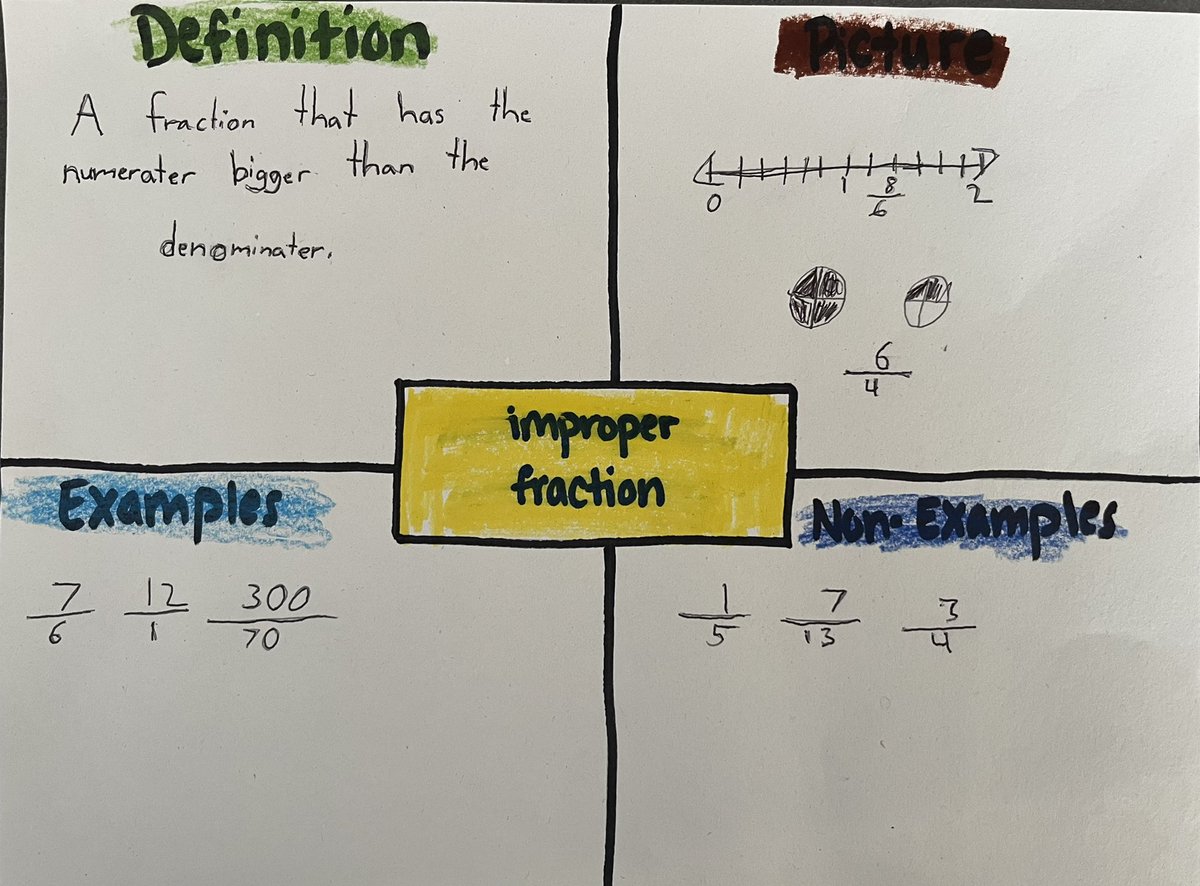 Definition
A fraction that has the
numerater bigger than the
denominater.
Picture
0 1 8/6 2
6/4
improper
fraction
Examples
7/6 12/1 300/70
Non-Examples
1/5 7/13 3/4